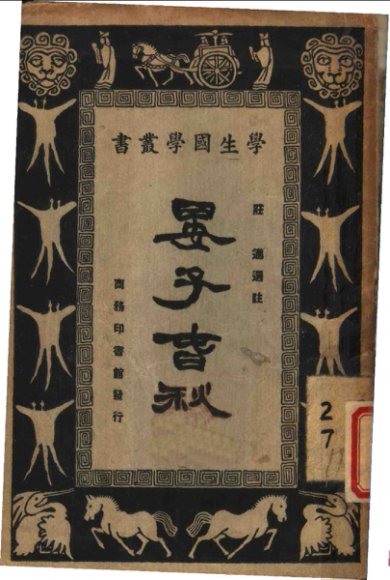 學生國學叢書
莊適選註
晏子春秋
商務印書館發行
27